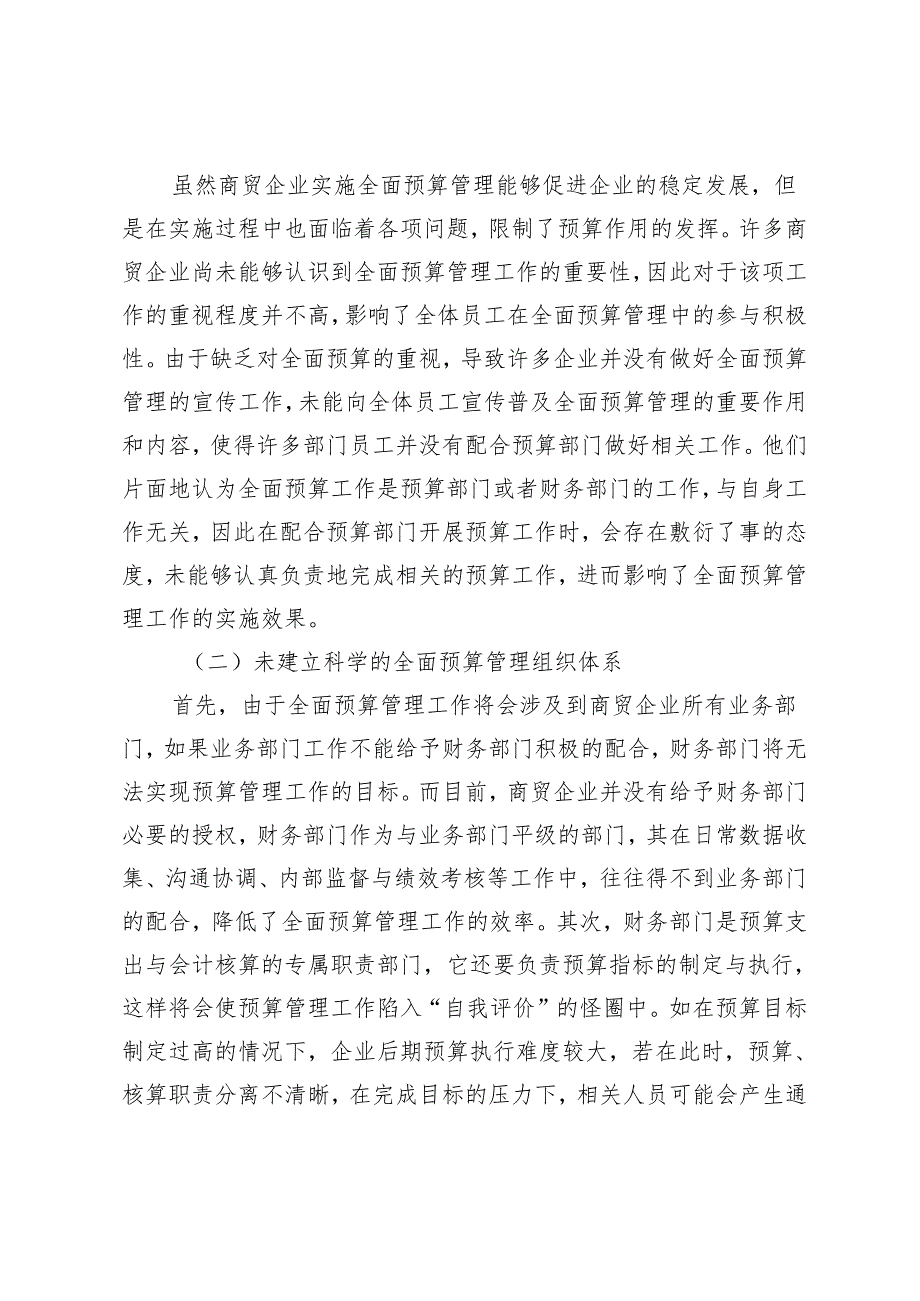 虽然商贸企业实施全面预算管理能够促进企业的稳定发展，但
是在实施过程中也面临着各项问题，限制了预算作用的发挥。许多商
贸企业尚未能够认识到全面预算管理工作的重要性，因此对于该项工
作的重视程度并不高，影响了全体员工在全面预算管理中的参与积极
性。由于缺乏对全面预算的重视，导致许多企业并没有做好全面预算
管理的宣传工作，未能向全体员工宣传普及全面预算管理的重要作用
和内容，使得许多部门员工并没有配合预算部门做好相关工作。他们
片面地认为全面预算工作是预算部门或者财务部门的工作，与自身工
作无关，因此在配合预算部门开展预算工作时，会存在敷衍了事的态
度，未能够认真负责地完成相关的预算工作，进而影响了全面预算管
理工作的实施效果。
（二）未建立科学的全面预算管理组织体系
首先，由于全面预算管理工作将会涉及到商贸企业所有业务部
门，如果业务部门工作不能给予财务部门积极的配合，财务部门将无
法实现预算管理工作的目标。而目前，商贸企业并没有给予财务部门
必要的授权，财务部门作为与业务部门平级的部门，其在日常数据收
集、沟通协调、内部监督与绩效考核等工作中，往往得不到业务部门
的配合，降低了全面预算管理工作的效率。其次，财务部门是预算支
出与会计核算的专属职责部门，它还要负责预算指标的制定与执行，
这样将会使预算管理工作陷入“自我评价”的怪圈中。如在预算目标
制定过高的情况下，企业后期预算执行难度较大，若在此时，预算、
核算职责分离不清晰，在完成目标的压力下，相关人员可能会产生通